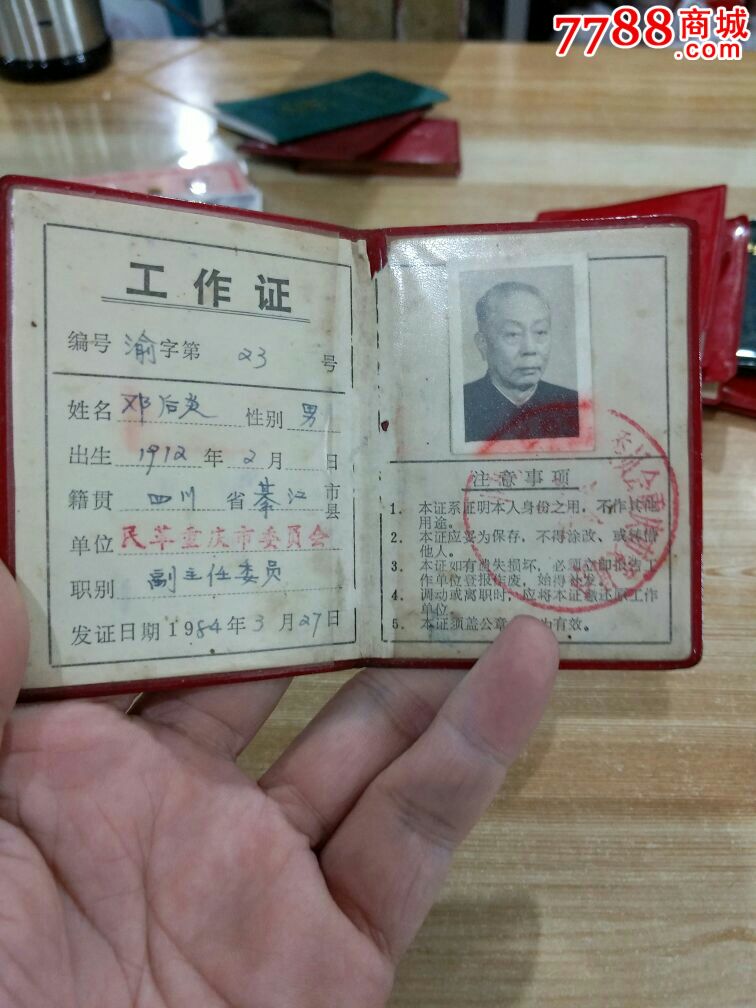 7788商城
.com
工作证
编号 渝字第 23 号
姓名 邓后炎 性别 男
出生 1912 年 2 月 日
籍贯 四川 省 綦江 市县
单位 民革重庆市委员会
职别 副主任委员
发证日期 1984年 3 月 27日
注意事项
1. 本证系证明本人身份之用，不作其他
用途。
2. 本证应妥为保存，不得涂改，或转借
他人。
3. 本证如有遗失损坏，必须立即报告工
作单位登报作废，始得补发。
4. 调动或离职时，应将本证缴还原工作
单位。
5. 本证须盖公章 为有效。